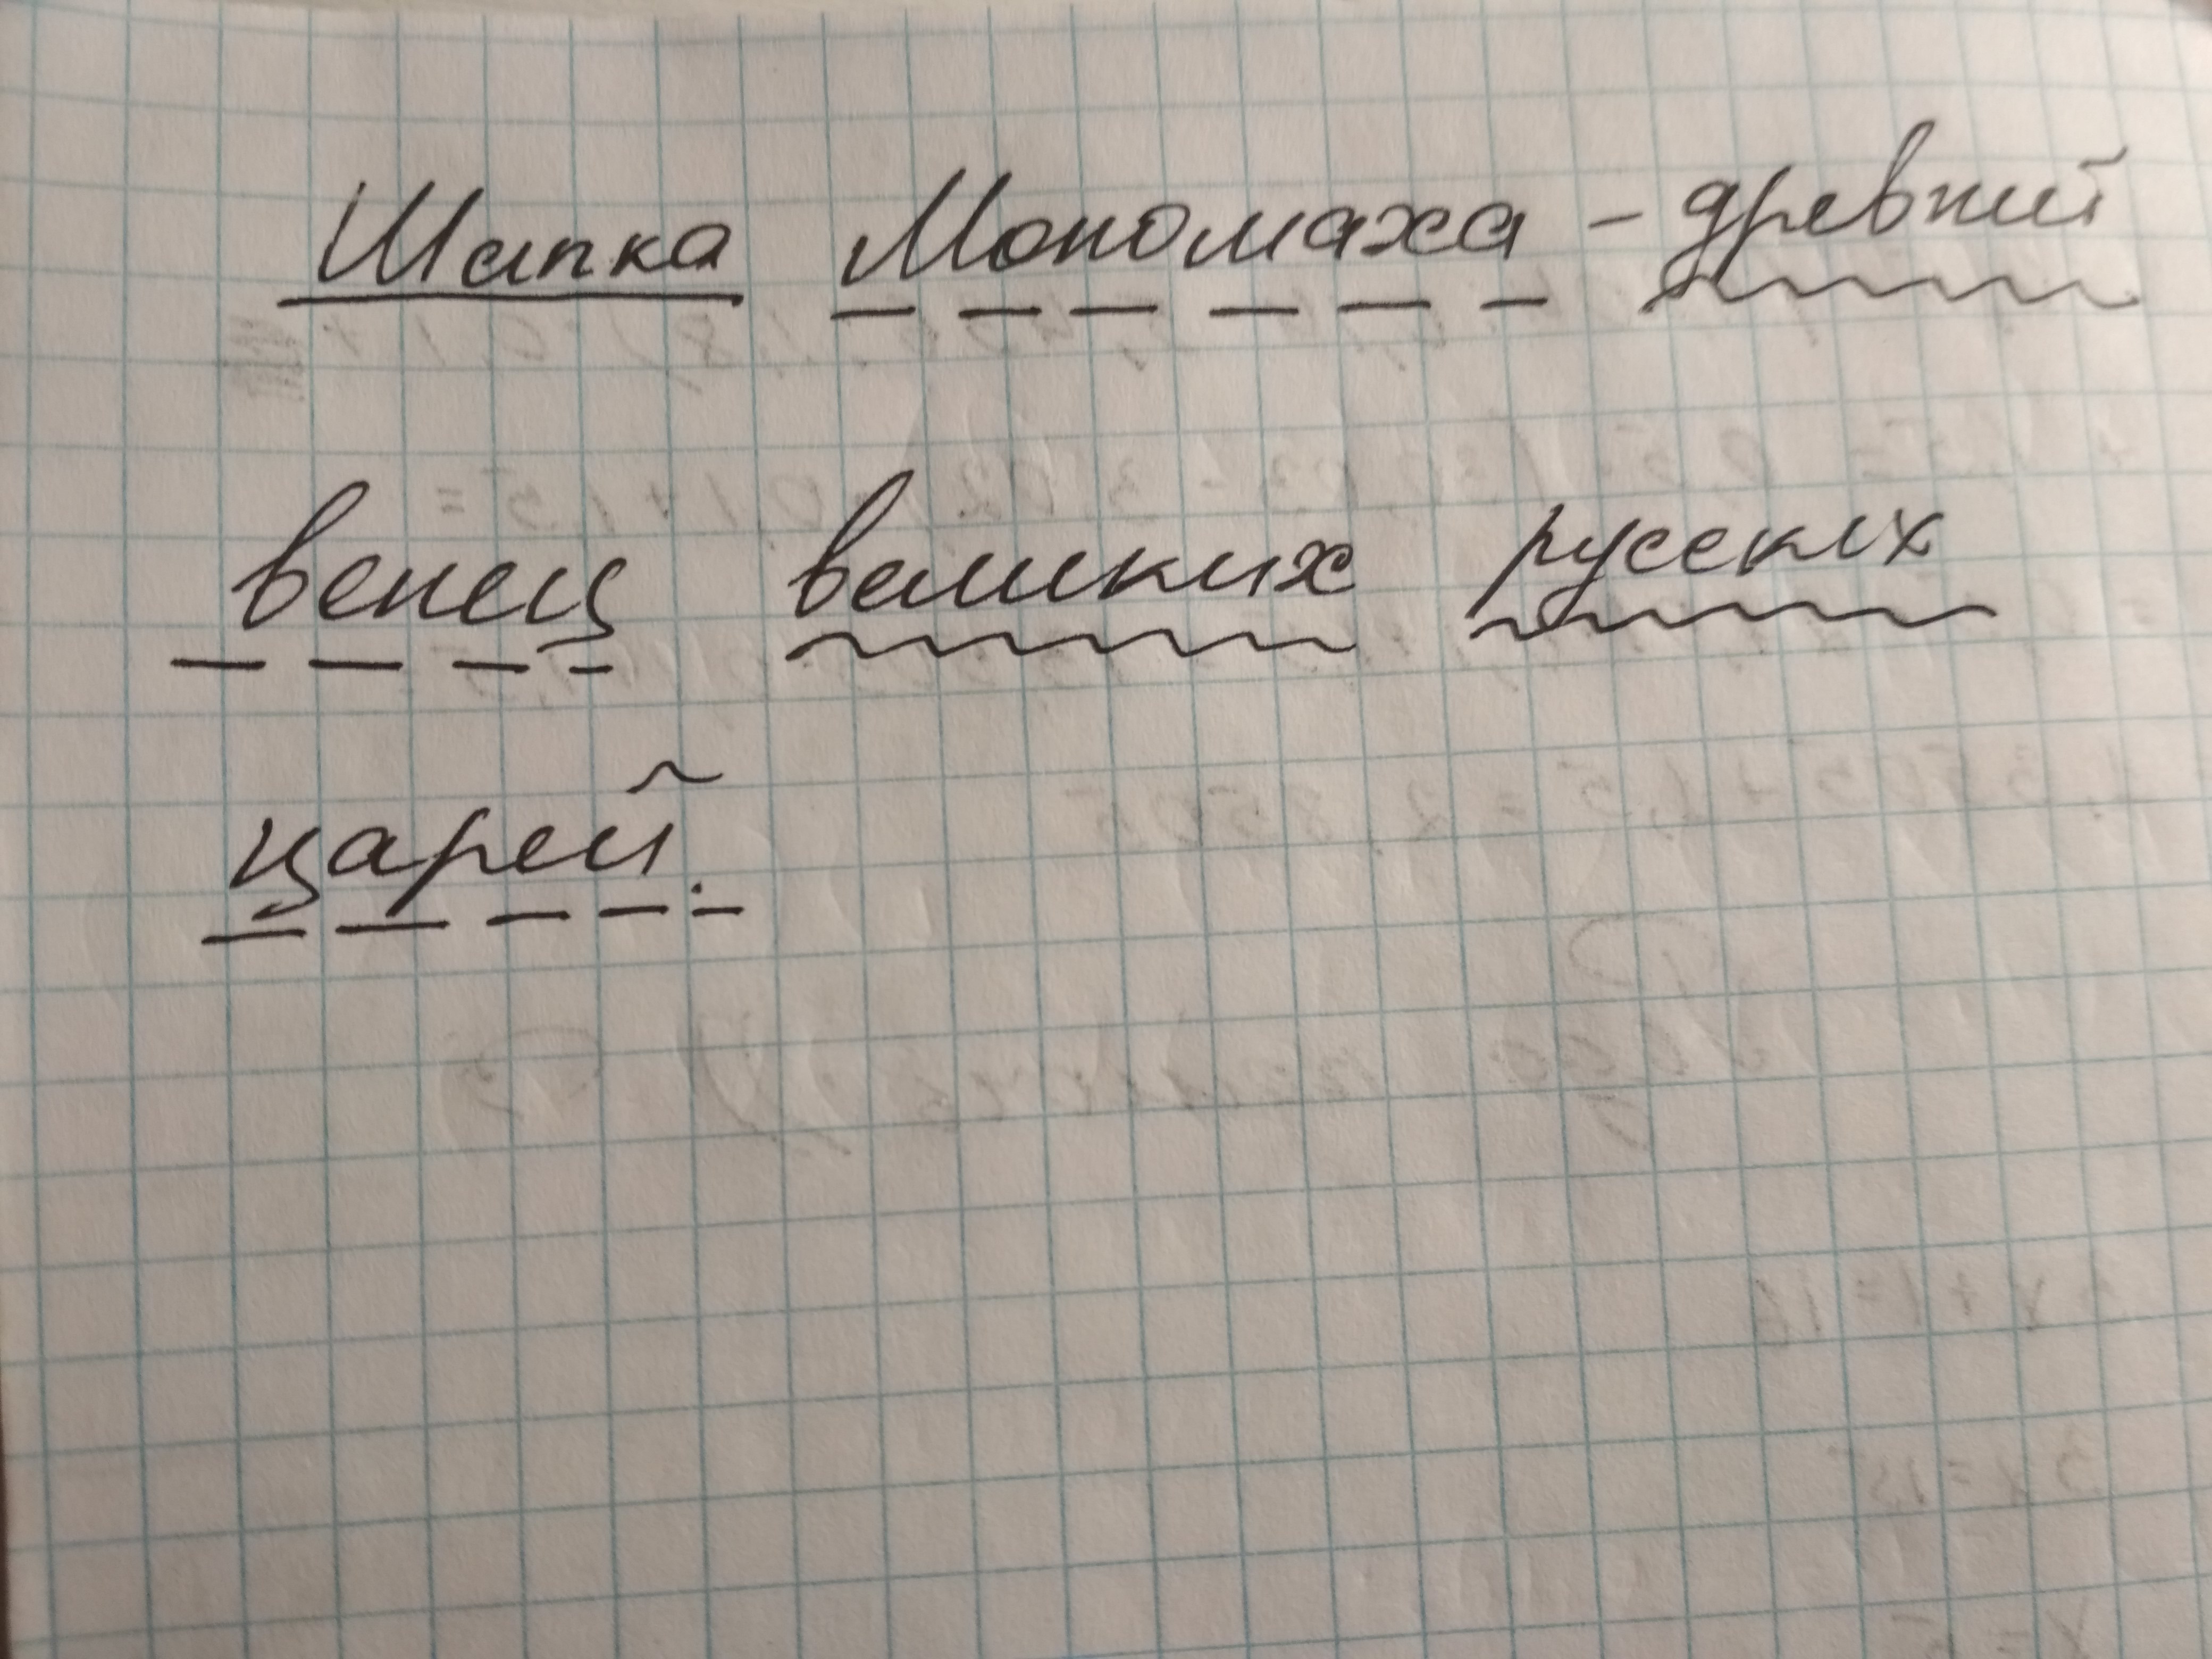 Шапка Мономаха - древний
венец великих русских
царей.